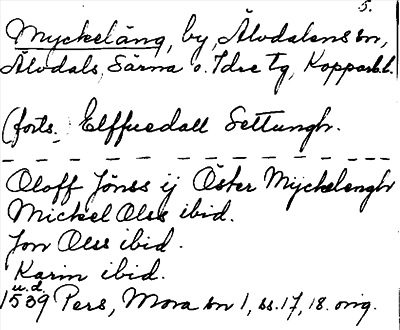 5.
Myckeläng, by, Älvdalens sn,
Älvdals, Särna o. Idre tg, Kopparb. l.
(forts. Elffuedall Settungh.
Oloff Jönss ij Öster Myckelengh
Mickel Olss ibid.
Jon Olss ibid.
Karin ibid.
u.d.
1539 Pers, Mora sn 1, ss. 17, 18. orig.